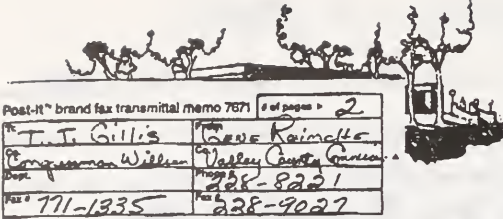 Post-it™ brand fax transmittal memo 7671 # of pages ▸ 2
To T.J. Gillis From Gene Reimche
Co. Congressman William Co. Valley County
Dept. Phone # 228-8221
Fax # 771-1335 Fax # 228-9027